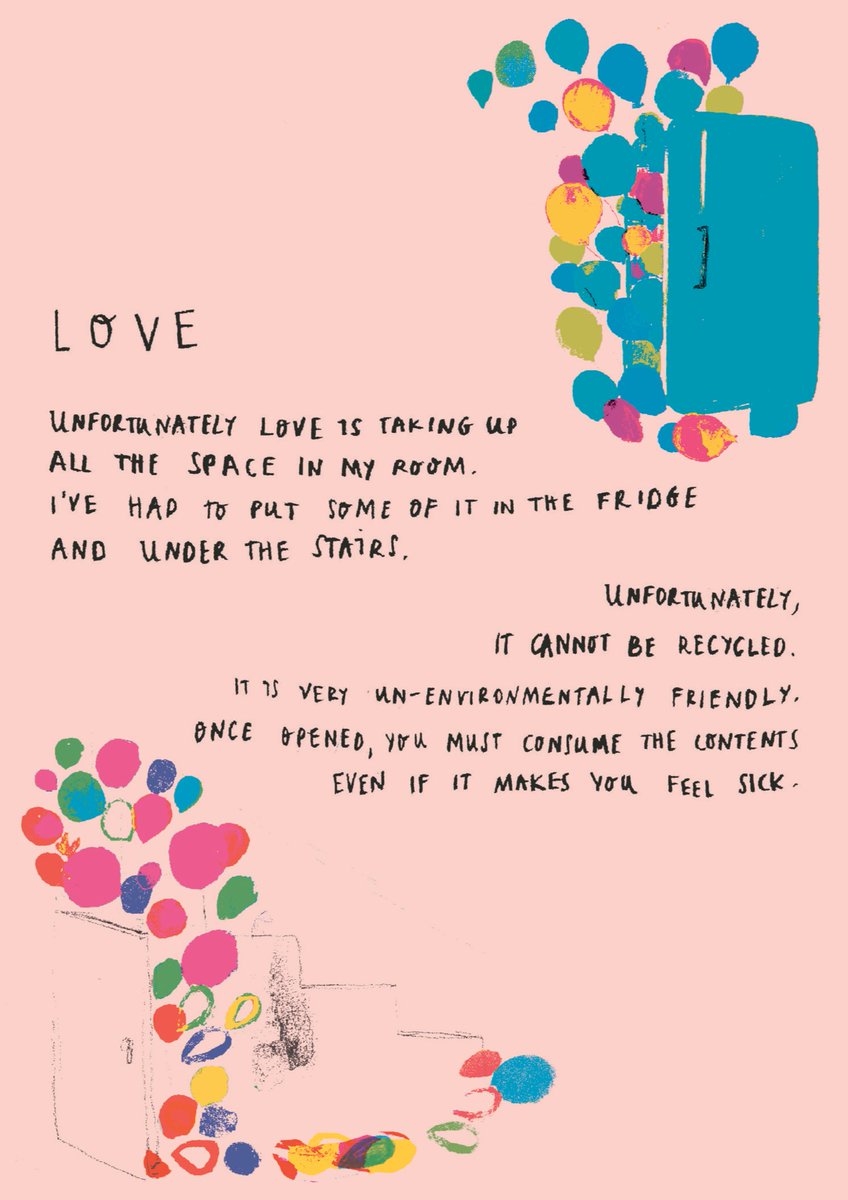 LOVE
UNFORTUNATELY LOVE IS TAKING UP
ALL THE SPACE IN MY ROOM.
I'VE HAD TO PUT SOME OF IT IN THE FRIDGE
AND UNDER THE STAIRS.
UNFORTUNATELY,
IT CANNOT BE RECYCLED.
IT IS VERY UN-ENVIRONMENTALLY FRIENDLY.
ONCE OPENED, YOU MUST CONSUME THE CONTENTS
EVEN IF IT MAKES YOU FEEL SICK.